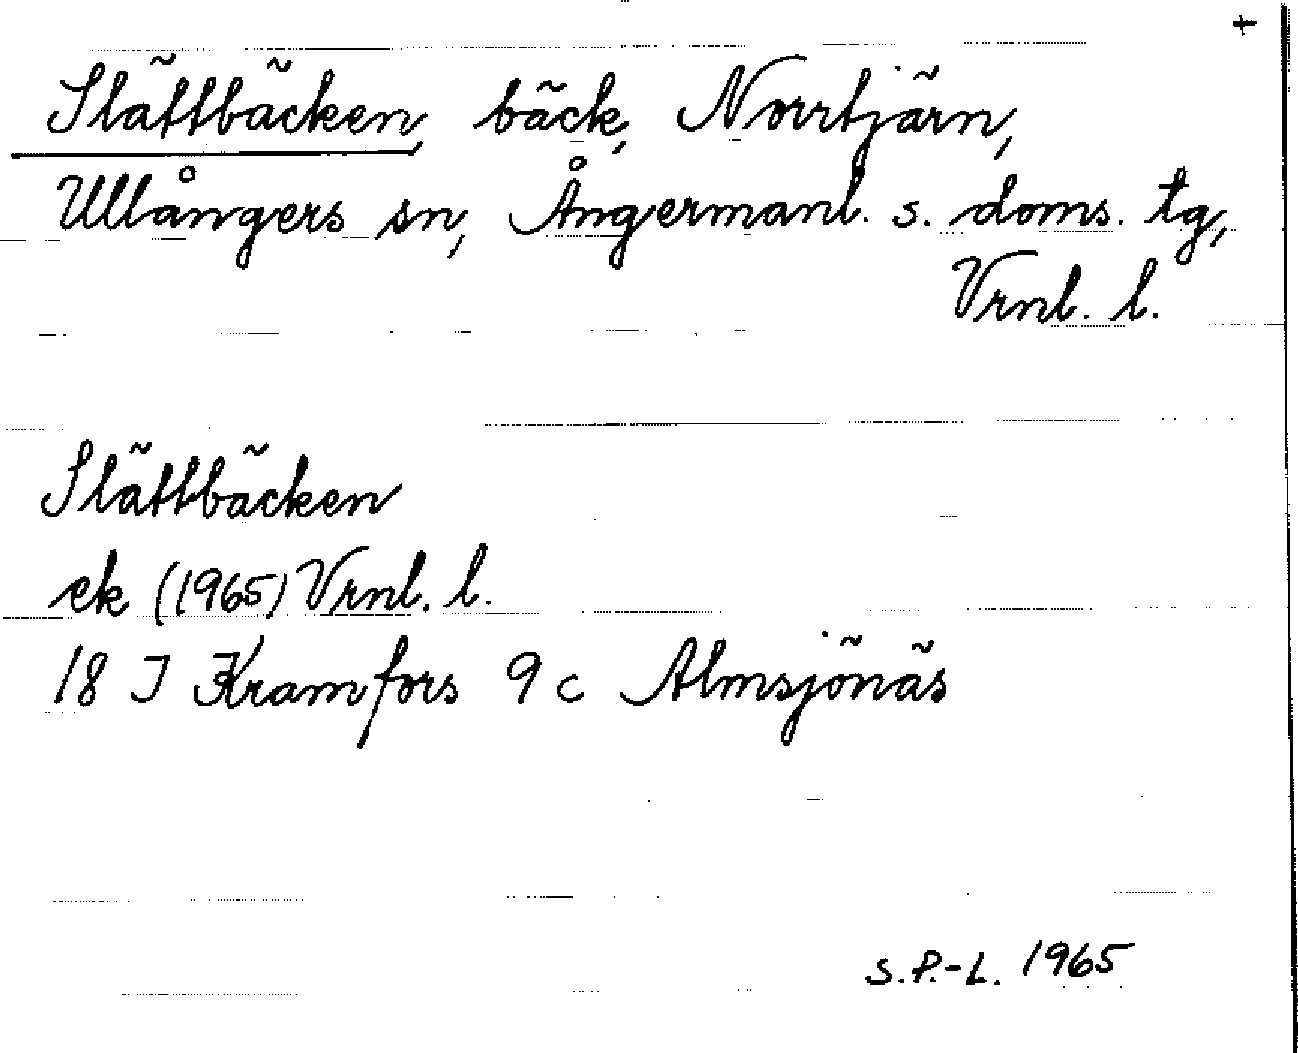 +
Slättbäcken, bäck, Norrtjärn,
Ullångers sn, Ångermanl. s. doms. tg,
Vrnl. l.
Slättbäcken
ek (1965) Vrnl. l.
18 I Kramfors 9 c Almsjönäs
S.P.-L. 1965